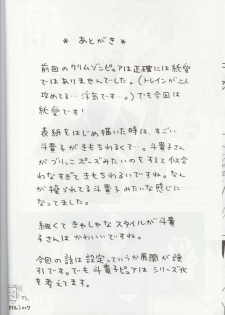 * あとがき *
前回のクリムゾンピュアは正確には純愛
ではありませんでした。(トレインがこん
攻めてる… 浮気です…。)でも今回は
純愛です!
表紙をはじめ描いた時は、すごい
斗貴子がきもちわるくて…。斗貴子さん
がブリっこポーズみたいのをすると似合
わなすぎてきもちわるいですね…。な
んか操られてる斗貴子みたいな感じに
になってました。
細くてきゃしゃなスタイルが斗貴
子さんはかわいいですね。
今回の話は設定っていうか展開が強
引です。でも斗貴子ピュアはシリーズ化
を考えてます。